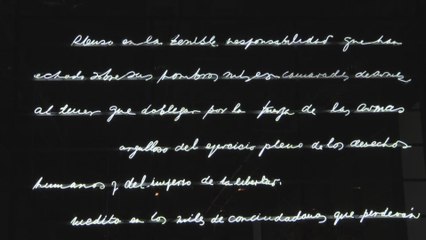 Pienso en la terrible responsabilidad que han
echado sobre sus hombros mis ex camaradas de armas
al tener que doblegar por la fuerza de las armas
orgulloso del ejercicio pleno de los derechos
humanos y del imperio de la libertad.
Medito en los miles de conciudadanos que perderán